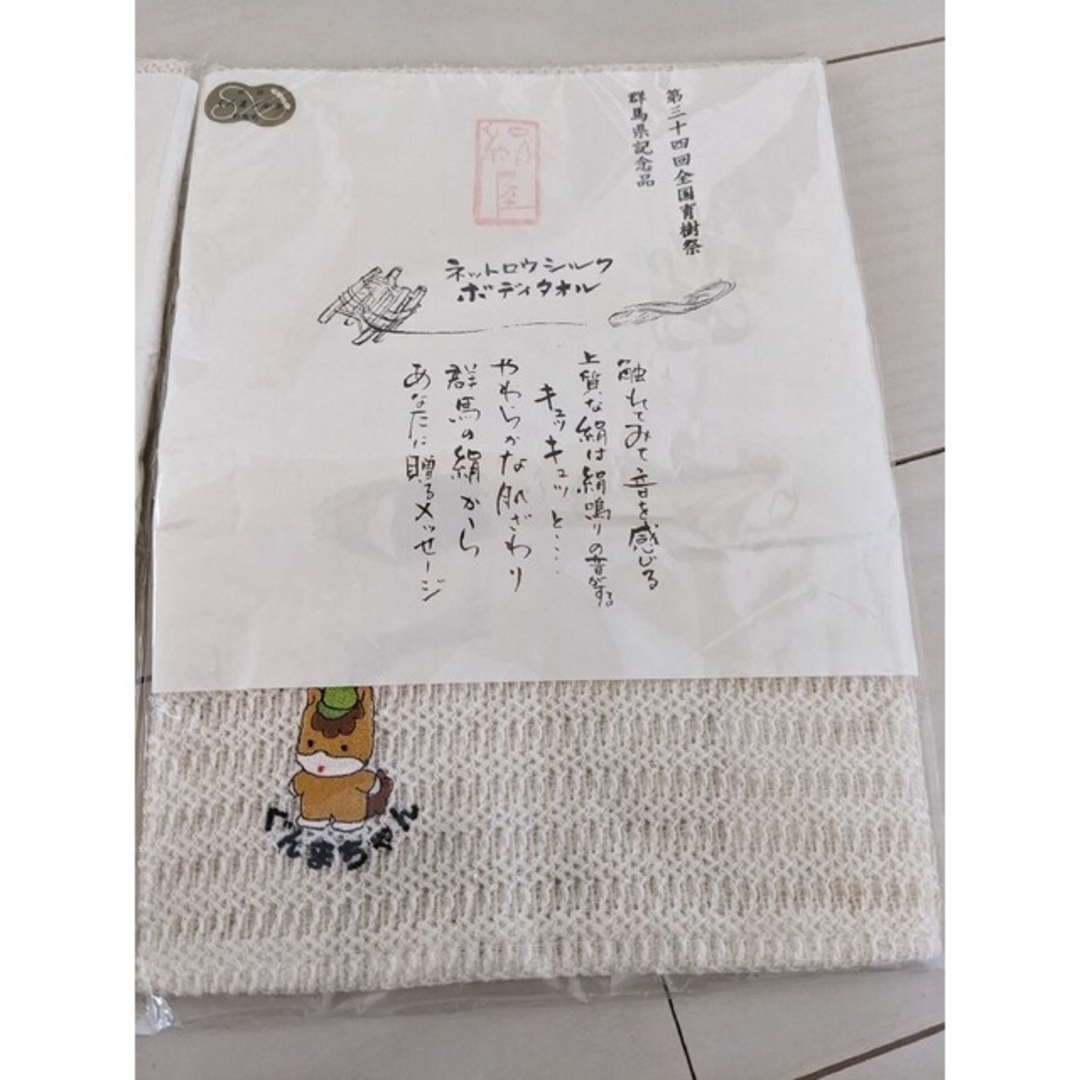 第三十四回全国育樹祭
群馬県記念品
ネットロウシルク
ボディタオル
触れてみて音を感じる
上質な絹は絹鳴りの音がする
キュッキュッと…
やわらかな肌ざわり
群馬の絹から
あなたに贈るメッセージ
ぐんまちゃん